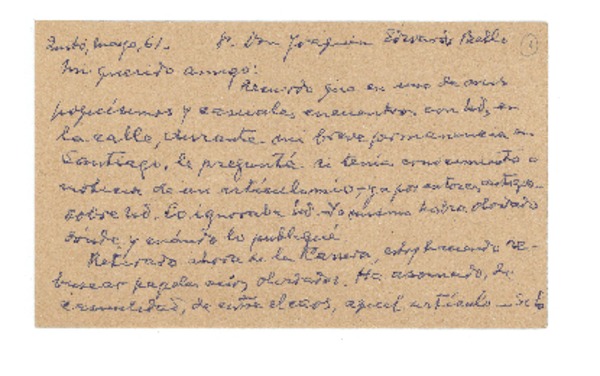 Quito, mayo, 61. Sr. Don Joaquín Edwards Bello
Mi querido amigo:
Recuerdo que en uno de mis
poquísimos y casuales encuentros con Ud, en
la calle, durante mi breve permanencia en
Santiago, le pregunté si tenía conocimiento o
noticia de un artículo mío, ya por entonces antiguo
sobre Ud. Lo ignoraba Ud. Yo mismo había olvidado
dónde y cuándo lo publiqué.
Retirado ahora de la estoy haciendo re-
buscar papeles míos olvidados. Ha asomado, de
casualidad, de entre el caos, aquel artículo. Se lo